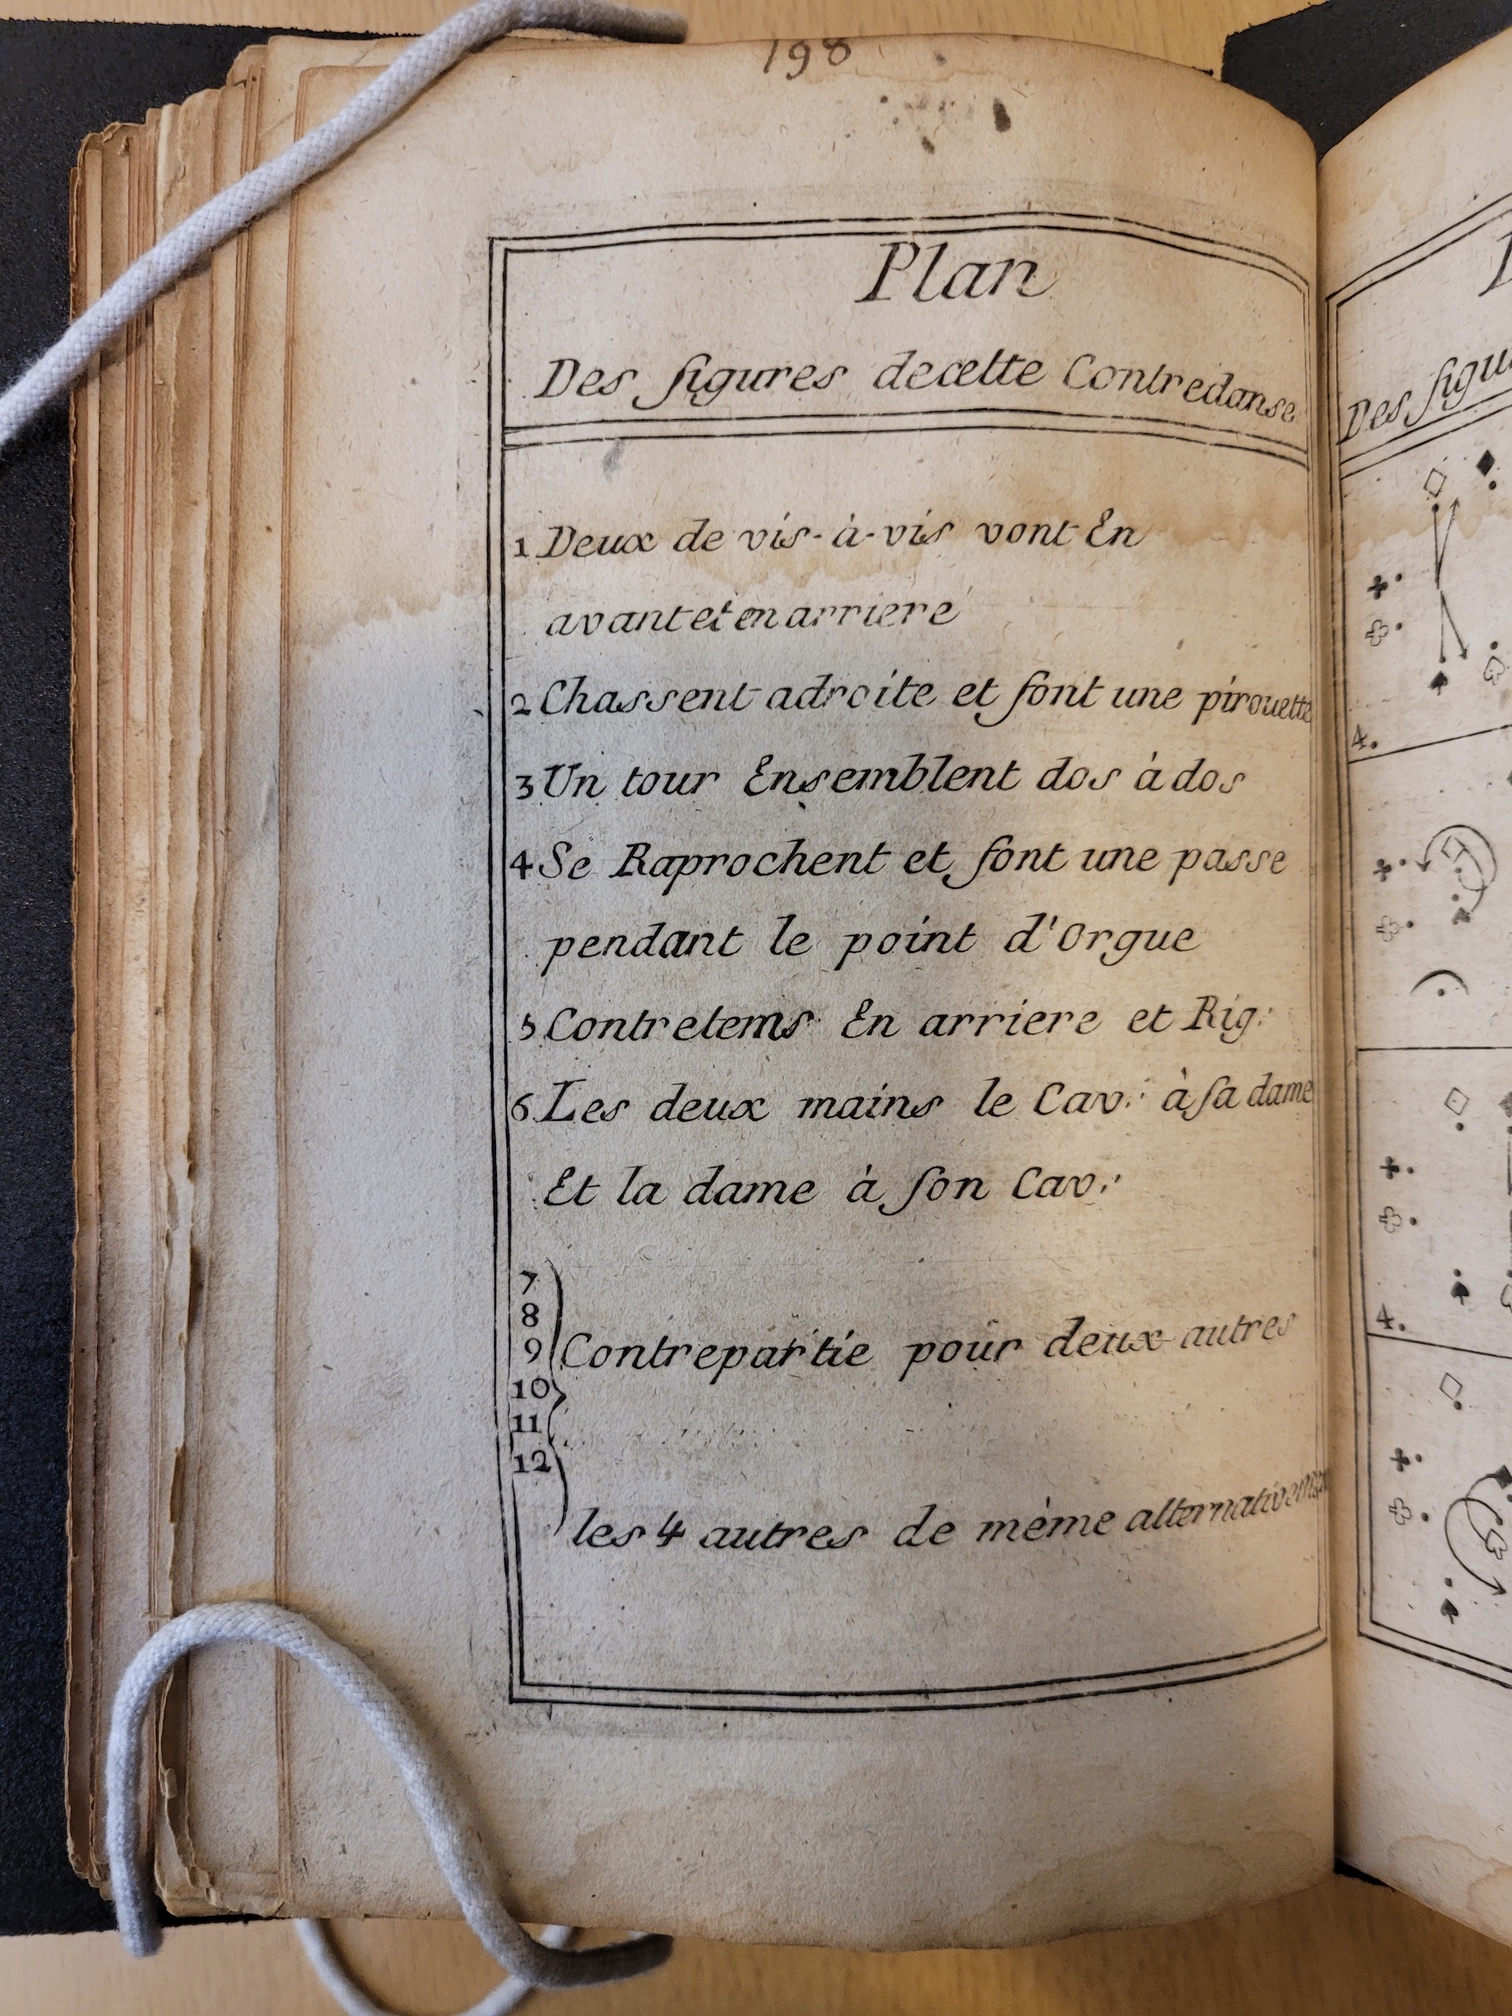 198
Plan
Des figures decette Contredanse
1 Deux de vis-à-vis vont En
avant et en arriere
2 Chassent adroite et font une pirouette
3 Un tour Ensemblent dos à dos
4 Se Raprochent et font une passe
pendant le point d'Orgue
5 Contretems En arriere et Rig:
6 Les deux mains le Cav: à sa dame
Et la dame à son Cav:
7
8
9 Contrepartie pour deux autres
10
11
12
les 4 autres de même
Des
4.
4.